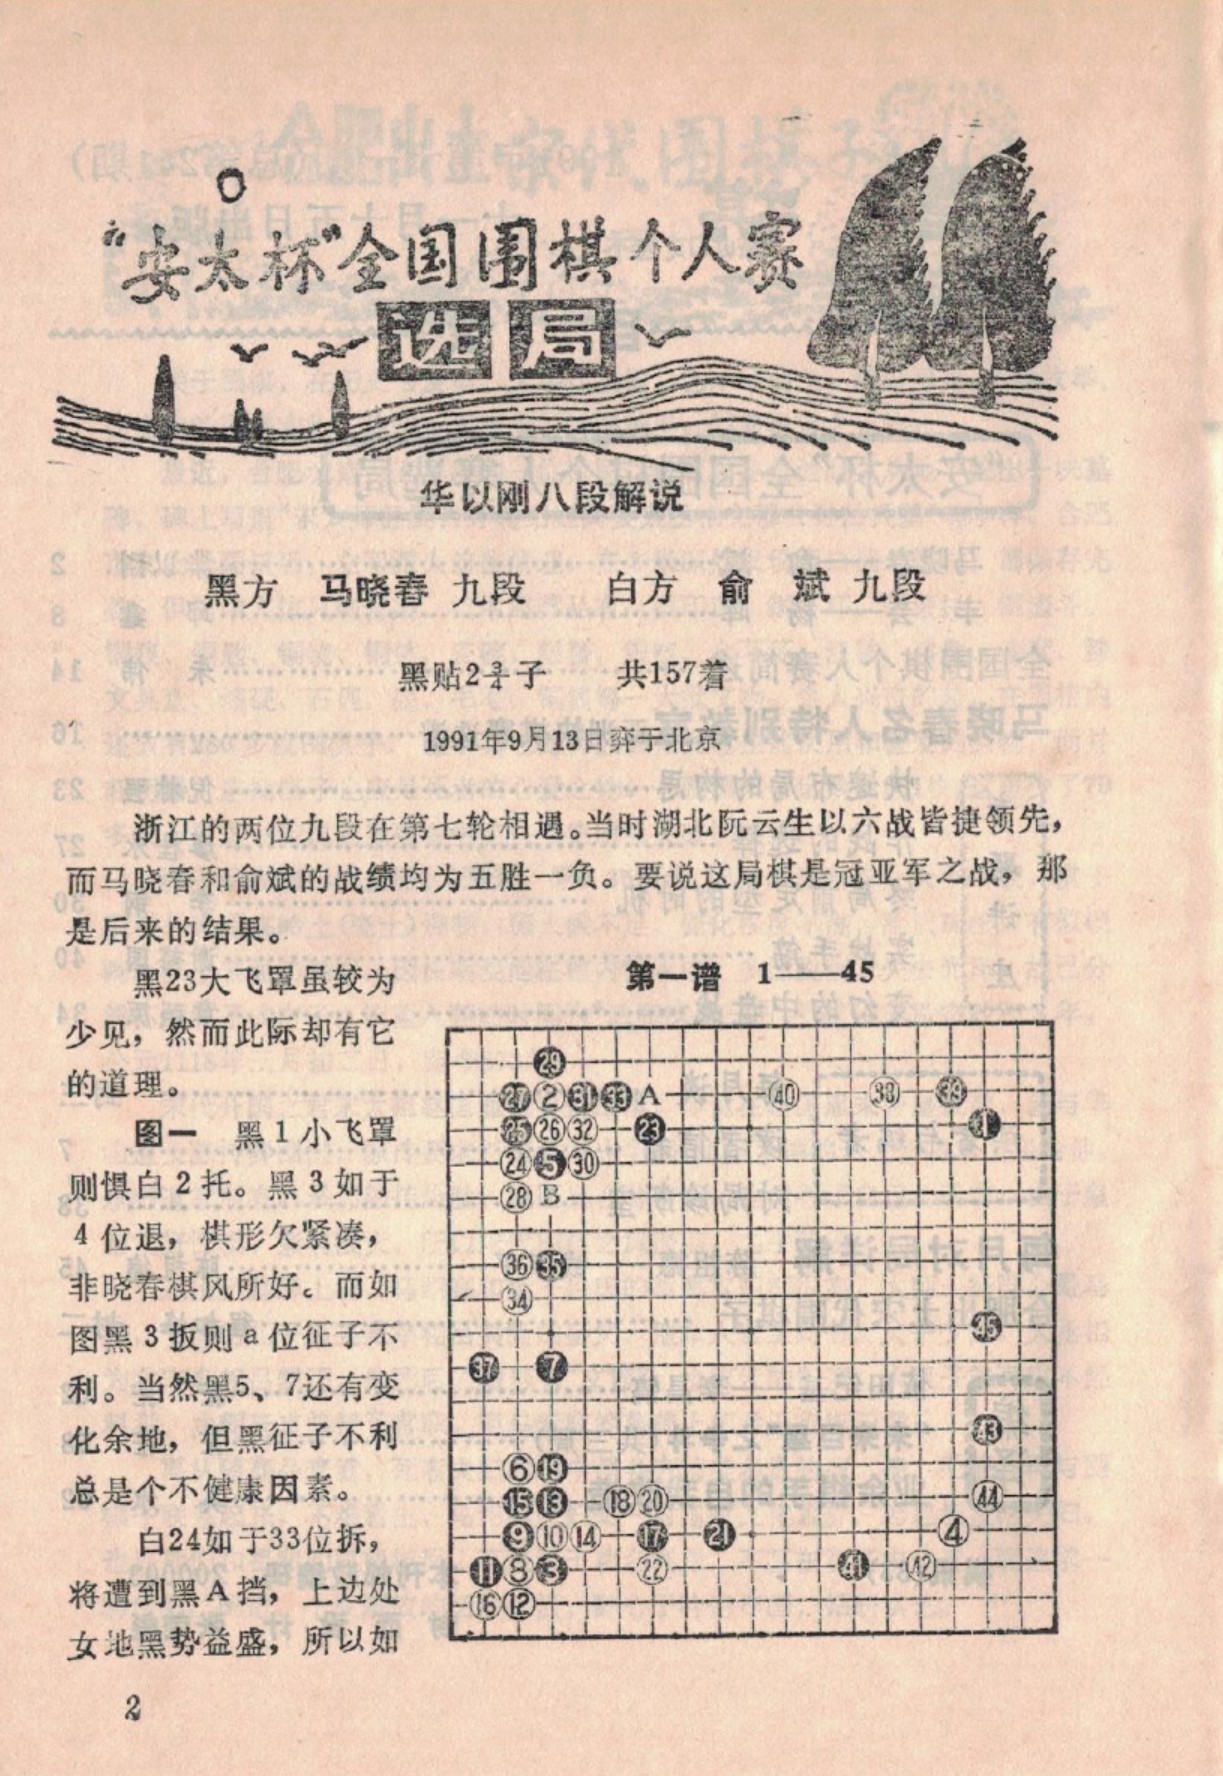 “安太杯”全国围棋个人赛
选局
华以刚八段解说
黑方 马晓春 九段 白方 俞 斌 九段
黑贴2¾子 共157着
1991年9月13日弈于北京
浙江的两位九段在第七轮相遇。当时湖北阮云生以六战皆捷领先，
而马晓春和俞斌的战绩均为五胜一负。要说这局棋是冠亚军之战，那
是后来的结果。
黑23大飞罩虽较为
少见，然而此际却有它
的道理。
图一 黑1小飞罩
则惧白2托。黑3如于
4位退，棋形欠紧凑，
非晓春棋风所好。而如
图黑3扳则a位征子不
利。当然黑5、7还有变
化余地，但黑征子不利
总是个不健康因素。
白24如于33位拆，
将遭到黑A挡，上边处
女地黑势益盛，所以如
第一谱 1——45
29
27 2 31 33 A 40 38 39
25 26 32 23 1
24 5 30
28 B
36 35
34
45
37 7
43
6 19
15 13 18 20 44
9 10 14 17 21 4
11 8 3 22 41 42
16 12
2